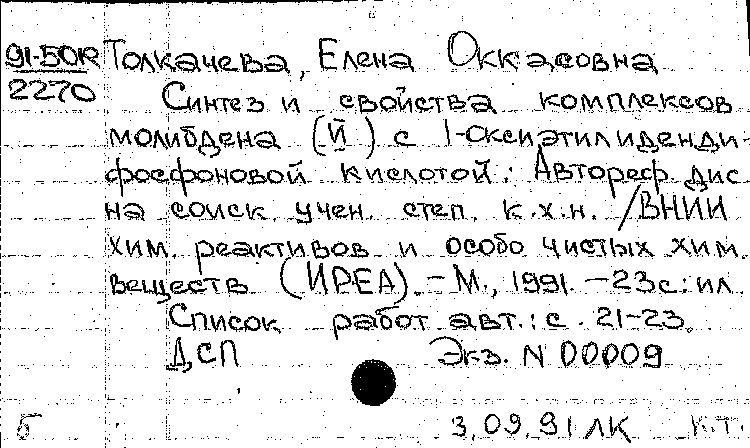 91-50R Толкачева, Елена Оккасовна
2270 Синтез и свойства комплексов
молибдена (Й) с 1-оксиэтилиденди-
фосфоновой кислотой: Автореф. дис
на соиск. учен. степ. к.х.н. /ВНИИ
хим. реактивов и особо чистых хим.
веществ (ИРЕА). - М., 1991. - 23 с.: ил
Список работ авт.: с. 21-23.
ДСП Экз. N 00009
5 3.09.91 ЛК К.Т.